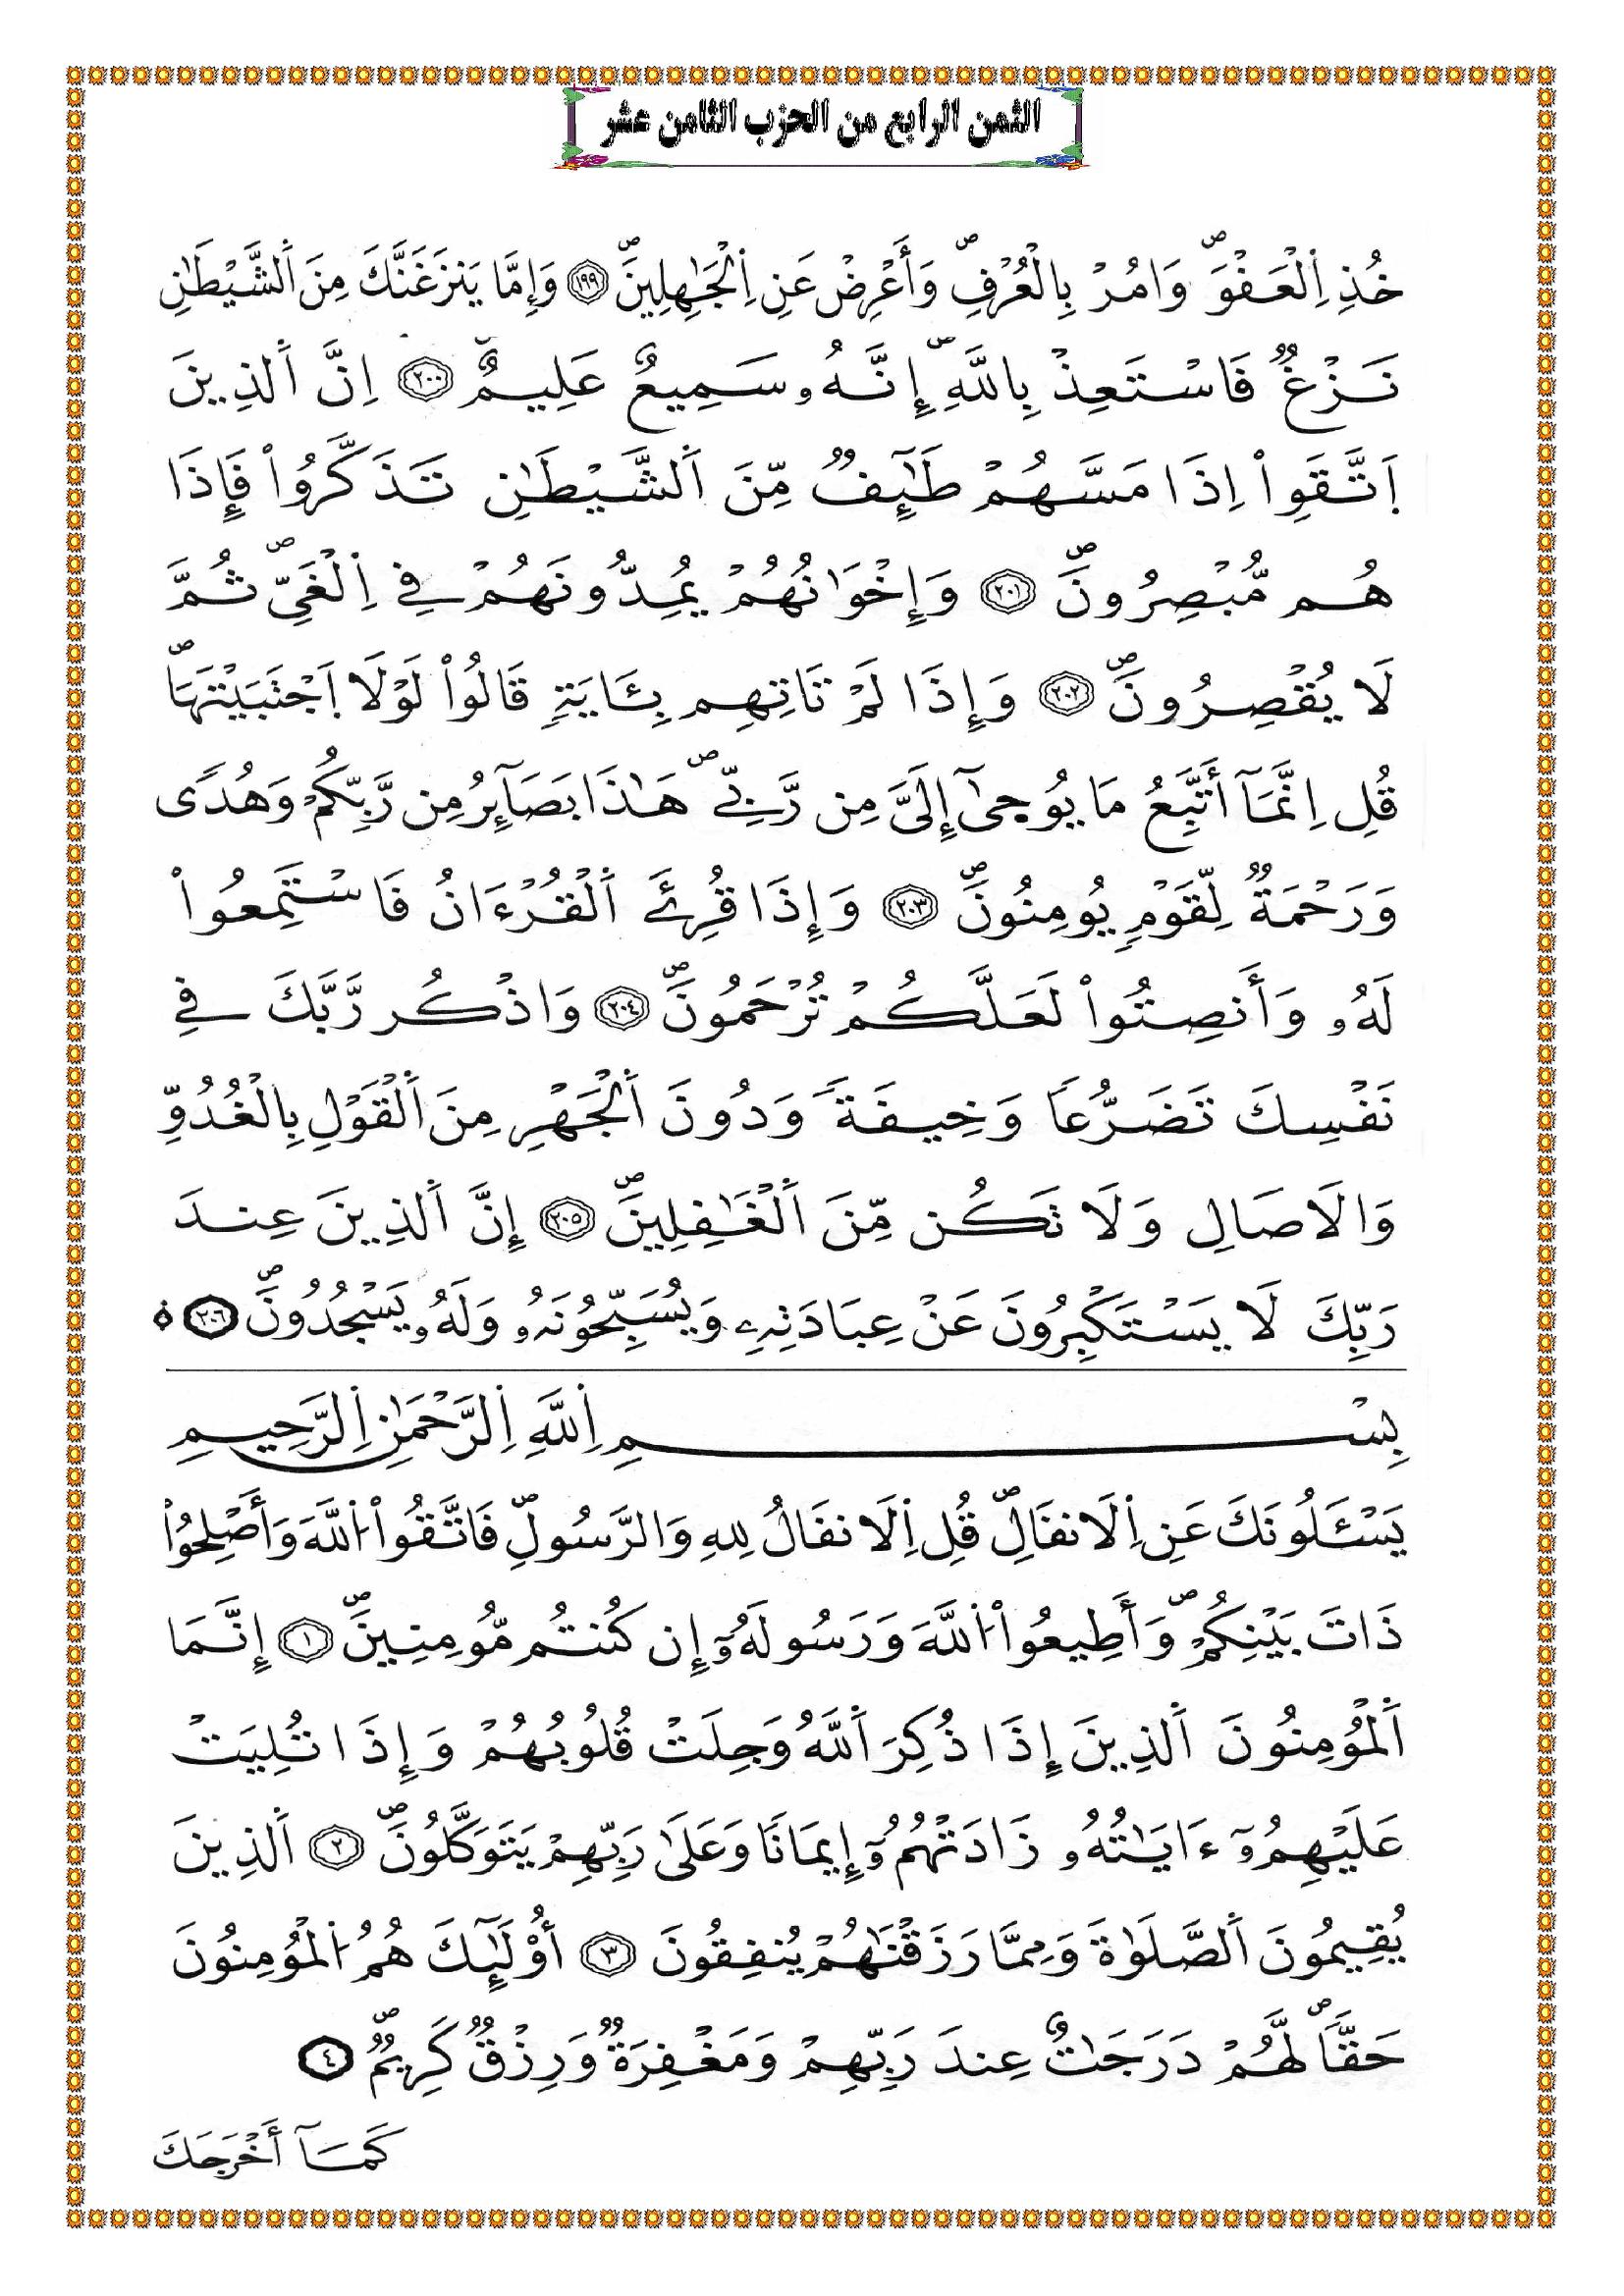 الثمن الرابع من الحزب الثامن عشر
خُذِ اِ۬لْعَفْوَۖ وَامُرْ بِالْعُرْفِۖ وَأَعْرِضْ عَنِ اِ۬لْجَٰهِلِينَۖ ١٩٩ وَإِمَّا يَنزَغَنَّكَ مِنَ اَ۬لشَّيْطَٰنِ
نَزْغٞ فَاسْتَعِذْ بِاللَّهِۖ إِنَّهُۥ سَمِيعٌ عَلِيمٌۖ ٢٠٠ اِنَّ اَ۬لذِينَ
اَ۪تَّقَوِاْ اِذَا مَسَّهُمْ طَٰٓئِفٞ مِّنَ اَ۬لشَّيْطَٰنِ تَذَكَّرُواْ فَإِذَا
هُم مُّبْصِرُونَۖ ٢٠١ وَإِخْوَٰنُهُمْ يُمِدُّونَهُمْ فِے اِ۬لْغَيِّۖ ثُمَّ
لَا يُقْصِرُونَۖ ٢٠٢ وَإِذَا لَمْ تَاتِهِم بِـَٔايَةٖ قَالُواْ لَوْلَا اَ۪جْتَبَيْتَهَاۖ
قُلِ اِنَّمَآ أَتَّبِعُ مَا يُوح۪يٰٓ إِلَيَّ مِن رَّبِّےۖ هَٰذَا بَصَآئِرُ مِن رَّبِّكُمْ وَهُدٗى
وَرَحْمَةٞ لِّقَوْمٖ يُومِنُونَۖ ٢٠٣ وَإِذَا قُرِئَ اَ۬لْقُرْءَانُ فَاسْتَمِعُواْ
لَهُۥ وَأَنصِتُواْ لَعَلَّكُمْ تُرْحَمُونَۖ ٢٠٤ وَاذْكُر رَّبَّكَ فِے
نَفْسِكَ تَضَرُّعاٗ وَخِيفَةٗ وَدُونَ اَ۬لْجَهْرِ مِنَ اَ۬لْقَوْلِ بِالْغُدُوِّ
وَالَاصَالِ وَلَا تَكُن مِّنَ اَ۬لْغَٰفِلِينَۖ ٢٠٥ إِنَّ اَ۬لذِينَ عِندَ
رَبِّكَ لَا يَسْتَكْبِرُونَ عَنْ عِبَادَتِهِۦ وَيُسَبِّحُونَهُۥ وَلَهُۥ يَسْجُدُونَۖ ٢٠٦ ۩
بِسْمِ اِ۬للَّهِ اِ۬لرَّحْمَٰنِ اِ۬لرَّحِيمِ
يَسْـَٔلُونَكَ عَنِ اِ۬لَانفَالِۖ قُلِ اِ۬لَانفَالُ لِلهِ وَالرَّسُولِۖ فَاتَّقُواْ اُ۬للَّهَ وَأَصْلِحُواْ
ذَاتَ بَيْنِكُمْۖ وَأَطِيعُواْ اُ۬للَّهَ وَرَسُولَهُۥٓ إِن كُنتُم مُّومِنِينَۖ ١ إِنَّمَا
اَ۬لْمُؤْمِنُونَ اَ۬لذِينَ إِذَا ذُكِرَ اَ۬للَّهُ وَجِلَتْ قُلُوبُهُمْ وَإِذَا تُلِيَتْ
عَلَيْهِمُۥٓ ءَايَٰتُهُۥ زَادَتْهُمُۥٓ إِيمَانٗا وَعَلَىٰ رَبِّهِمْ يَتَوَكَّلُونَۖ ٢ اَ۬لذِينَ
يُقِيمُونَ اَ۬لصَّلَوٰةَ وَمِمَّا رَزَقْنَٰهُمْ يُنفِقُونَ ٣ أُوْلَٰٓئِكَ هُمُ اُ۬لْمُؤْمِنُونَ
حَقّاٗۖ لَّهُمْ دَرَجَٰتٌ عِندَ رَبِّهِمْ وَمَغْفِرَةٞ وَرِزْقٞ كَرِيمٞۖ ٤
كَمَآ أَخْرَجَكَ